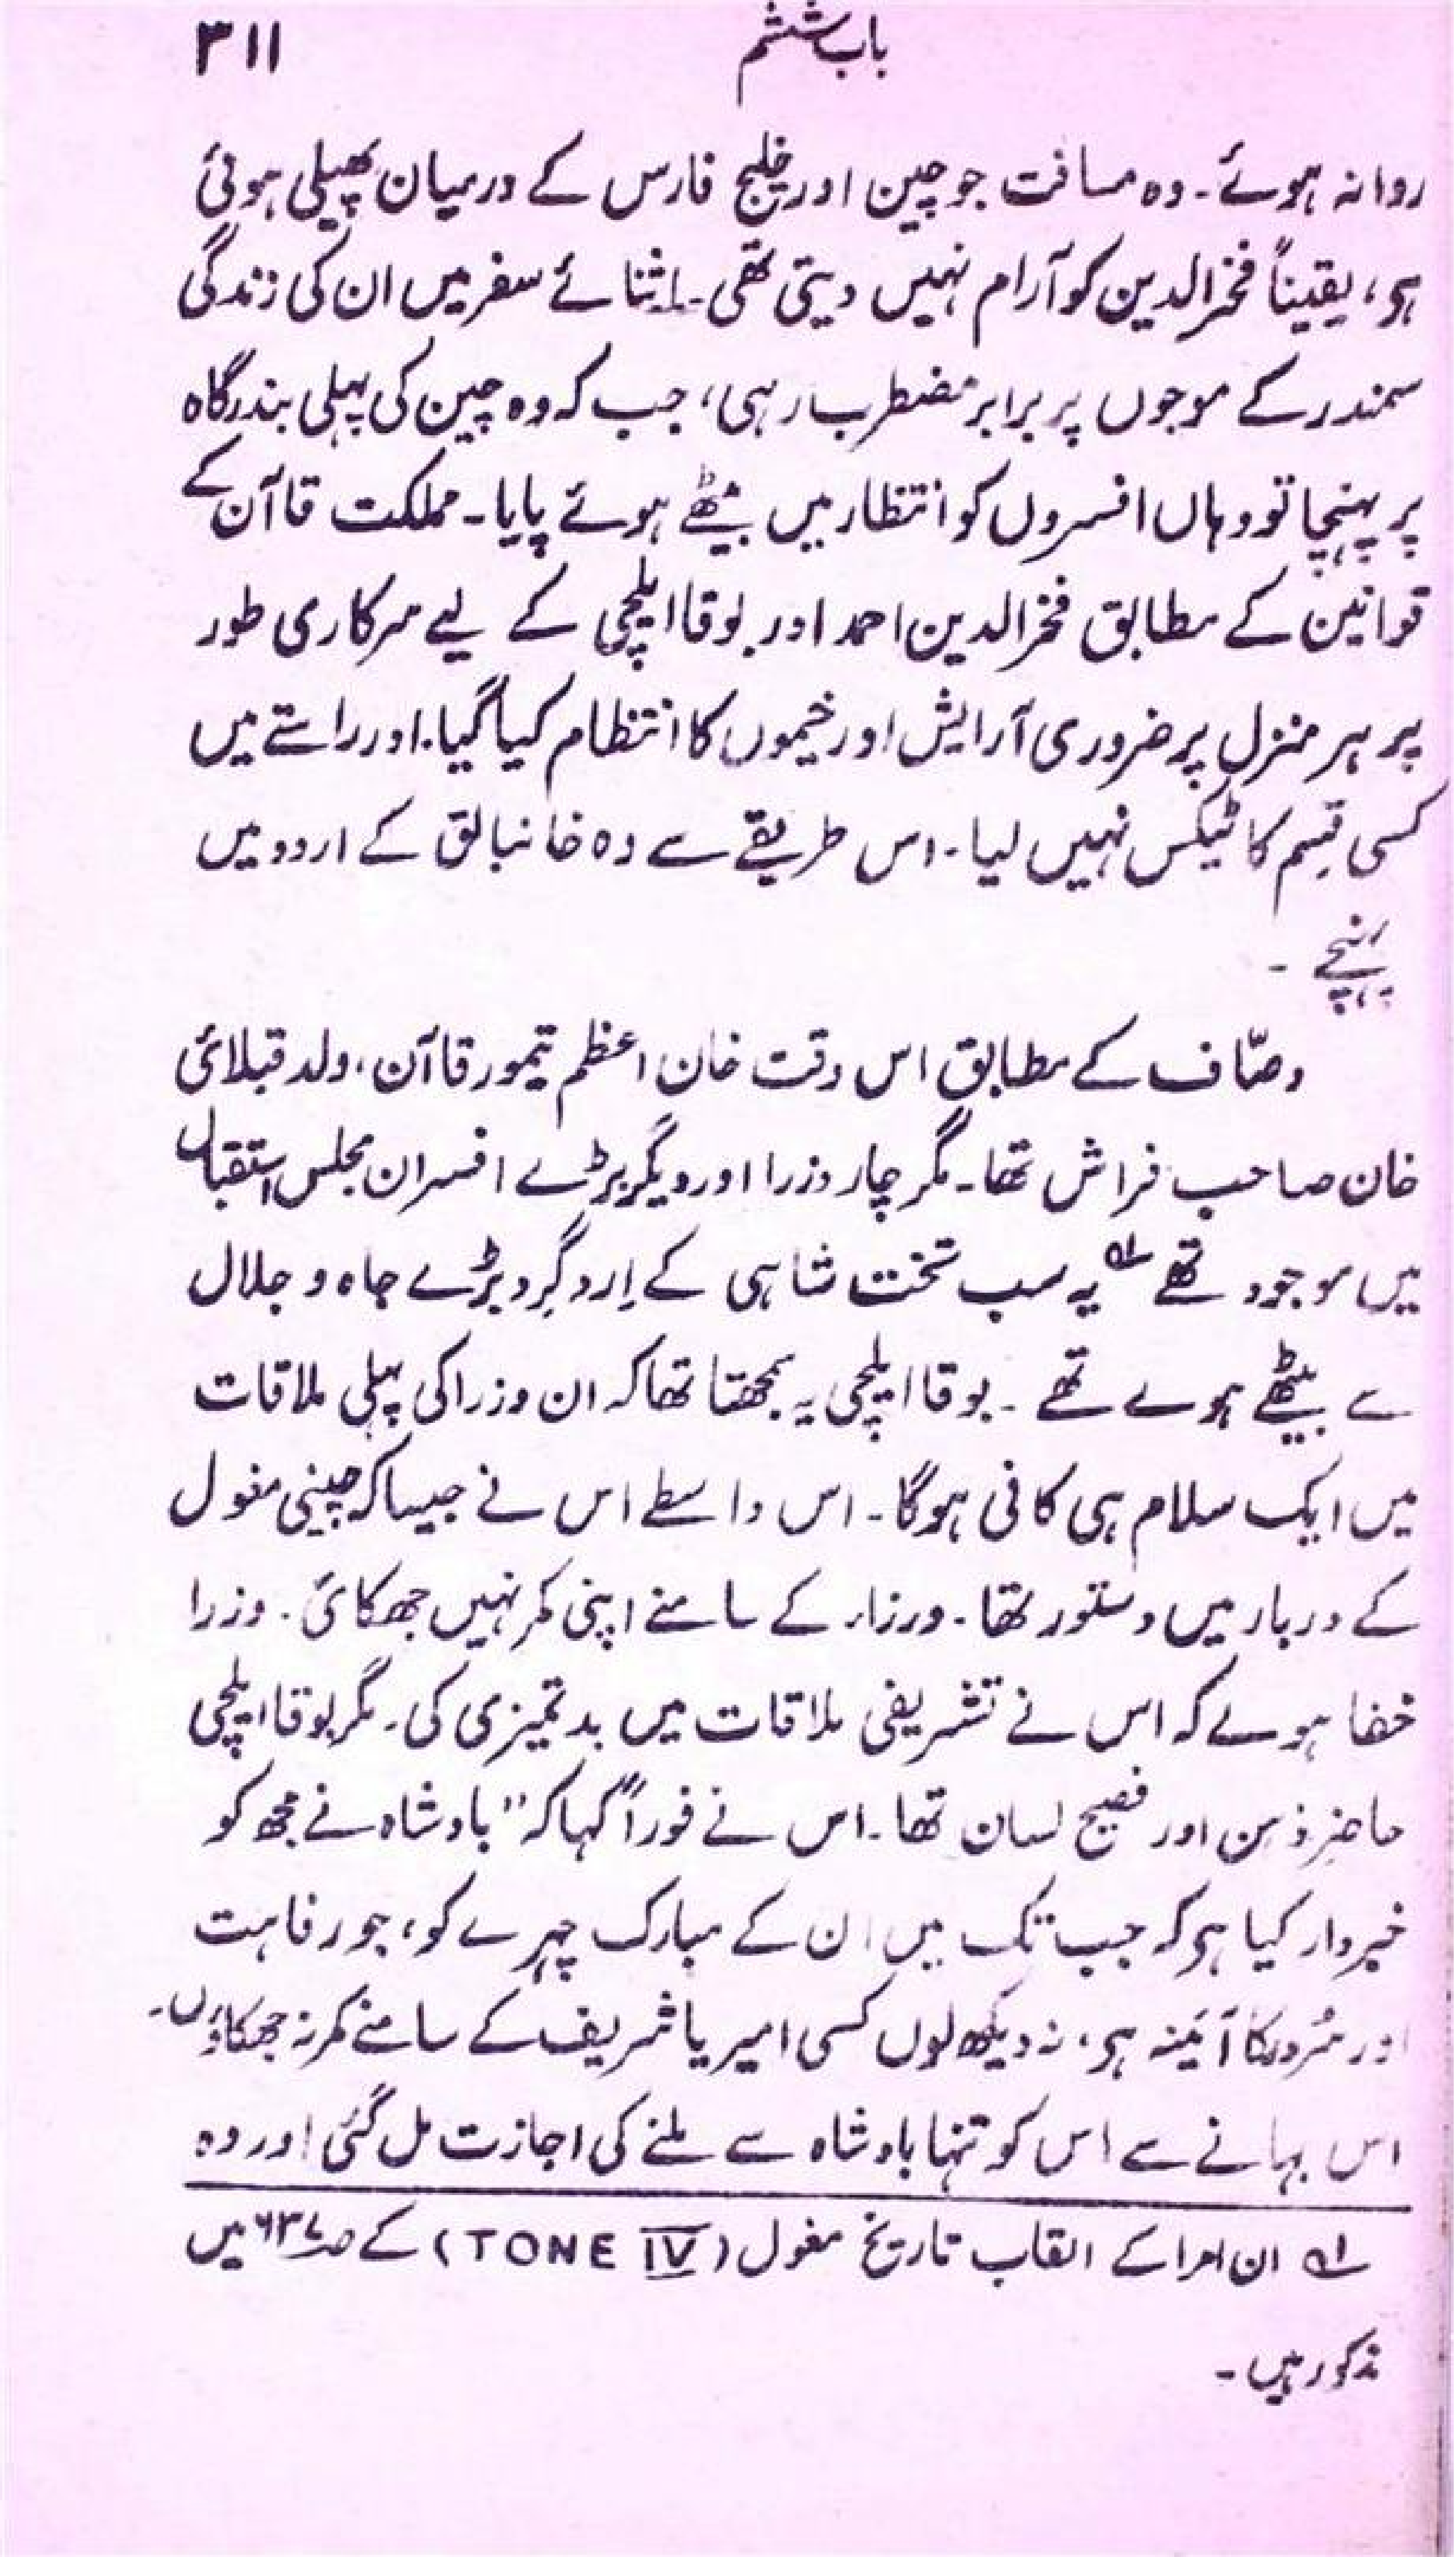 باب ششم ۳۱۱
روانہ ہوئے۔ وہ مسافت جو چین اور خلیج فارس کے درمیان پھیلی ہوئی
ہی، یقیناً فخرالدین کو آرام نہیں دیتی تھی۔ اثنائے سفر میں ان کی زندگی
سمندر کے موجوں پر برابر مضطرب رہی، جب کہ وہ چین کی پہلی بندرگاہ
پر پہنچا تو وہاں افسروں کو انتظار میں بیٹھے ہوئے پایا۔ مملکت قاآن کے
قوانین کے مطابق فخرالدین احمد اور بوقا ایلچی کے لیے سرکاری طور
پر ہر منزل پر ضروری آرایش اور خیموں کا انتظام کیا گیا۔ اور راستے میں
کسی قسم کا ٹیکس نہیں لیا۔ اس طریقے سے وہ خانبالق کے اردو میں
پہنچے ۔
وصّاف کے مطابق اس وقت خان اعظم تیمور قاآن، ولد قبلائی
خان صاحب فراش تھا۔ مگر چار وزرا اور دیگر بڑے افسران مجلس استقبال
میں موجود تھے لہ یہ سب تخت شاہی کے اِرد گِرد بڑے جاہ و جلال
سے بیٹھے ہوے تھے ۔ بوقا ایلچی یہ سمجھتا تھا کہ ان وزرا کی پہلی ملاقات
میں ایک سلام ہی کافی ہوگا۔ اس واسطے اس نے جیسا کہ چینی مغول
کے دربار میں دستور تھا۔ ورزاء کے سامنے اپنی کمر نہیں جھکائی۔ وزرا
خفا ہوے کہ اس نے تشریفی ملاقات میں بدتمیزی کی۔ مگر بوقا ایلچی
حاضرِ ذہن اور فصیح لسان تھا۔ اس نے فوراً کہا کہ ”بادشاہ نے مجھ کو
خبردار کیا ہی کہ جب تک میں ان کے مبارک چہرے کو، جو رفاہت
اور سُرور کا آئینہ ہی، نہ دیکھ لوں کسی امیر یا شریف کے سامنے کمر نہ جھکاؤں۔
اس بہانے سے اس کو تنہا بادشاہ سے ملنے کی اجازت مل گئی اور وہ
لہ ان امرا کے القاب تاریخ مغول (TONE IV) کے صہ ۶۳۷ میں
مذکور ہیں۔